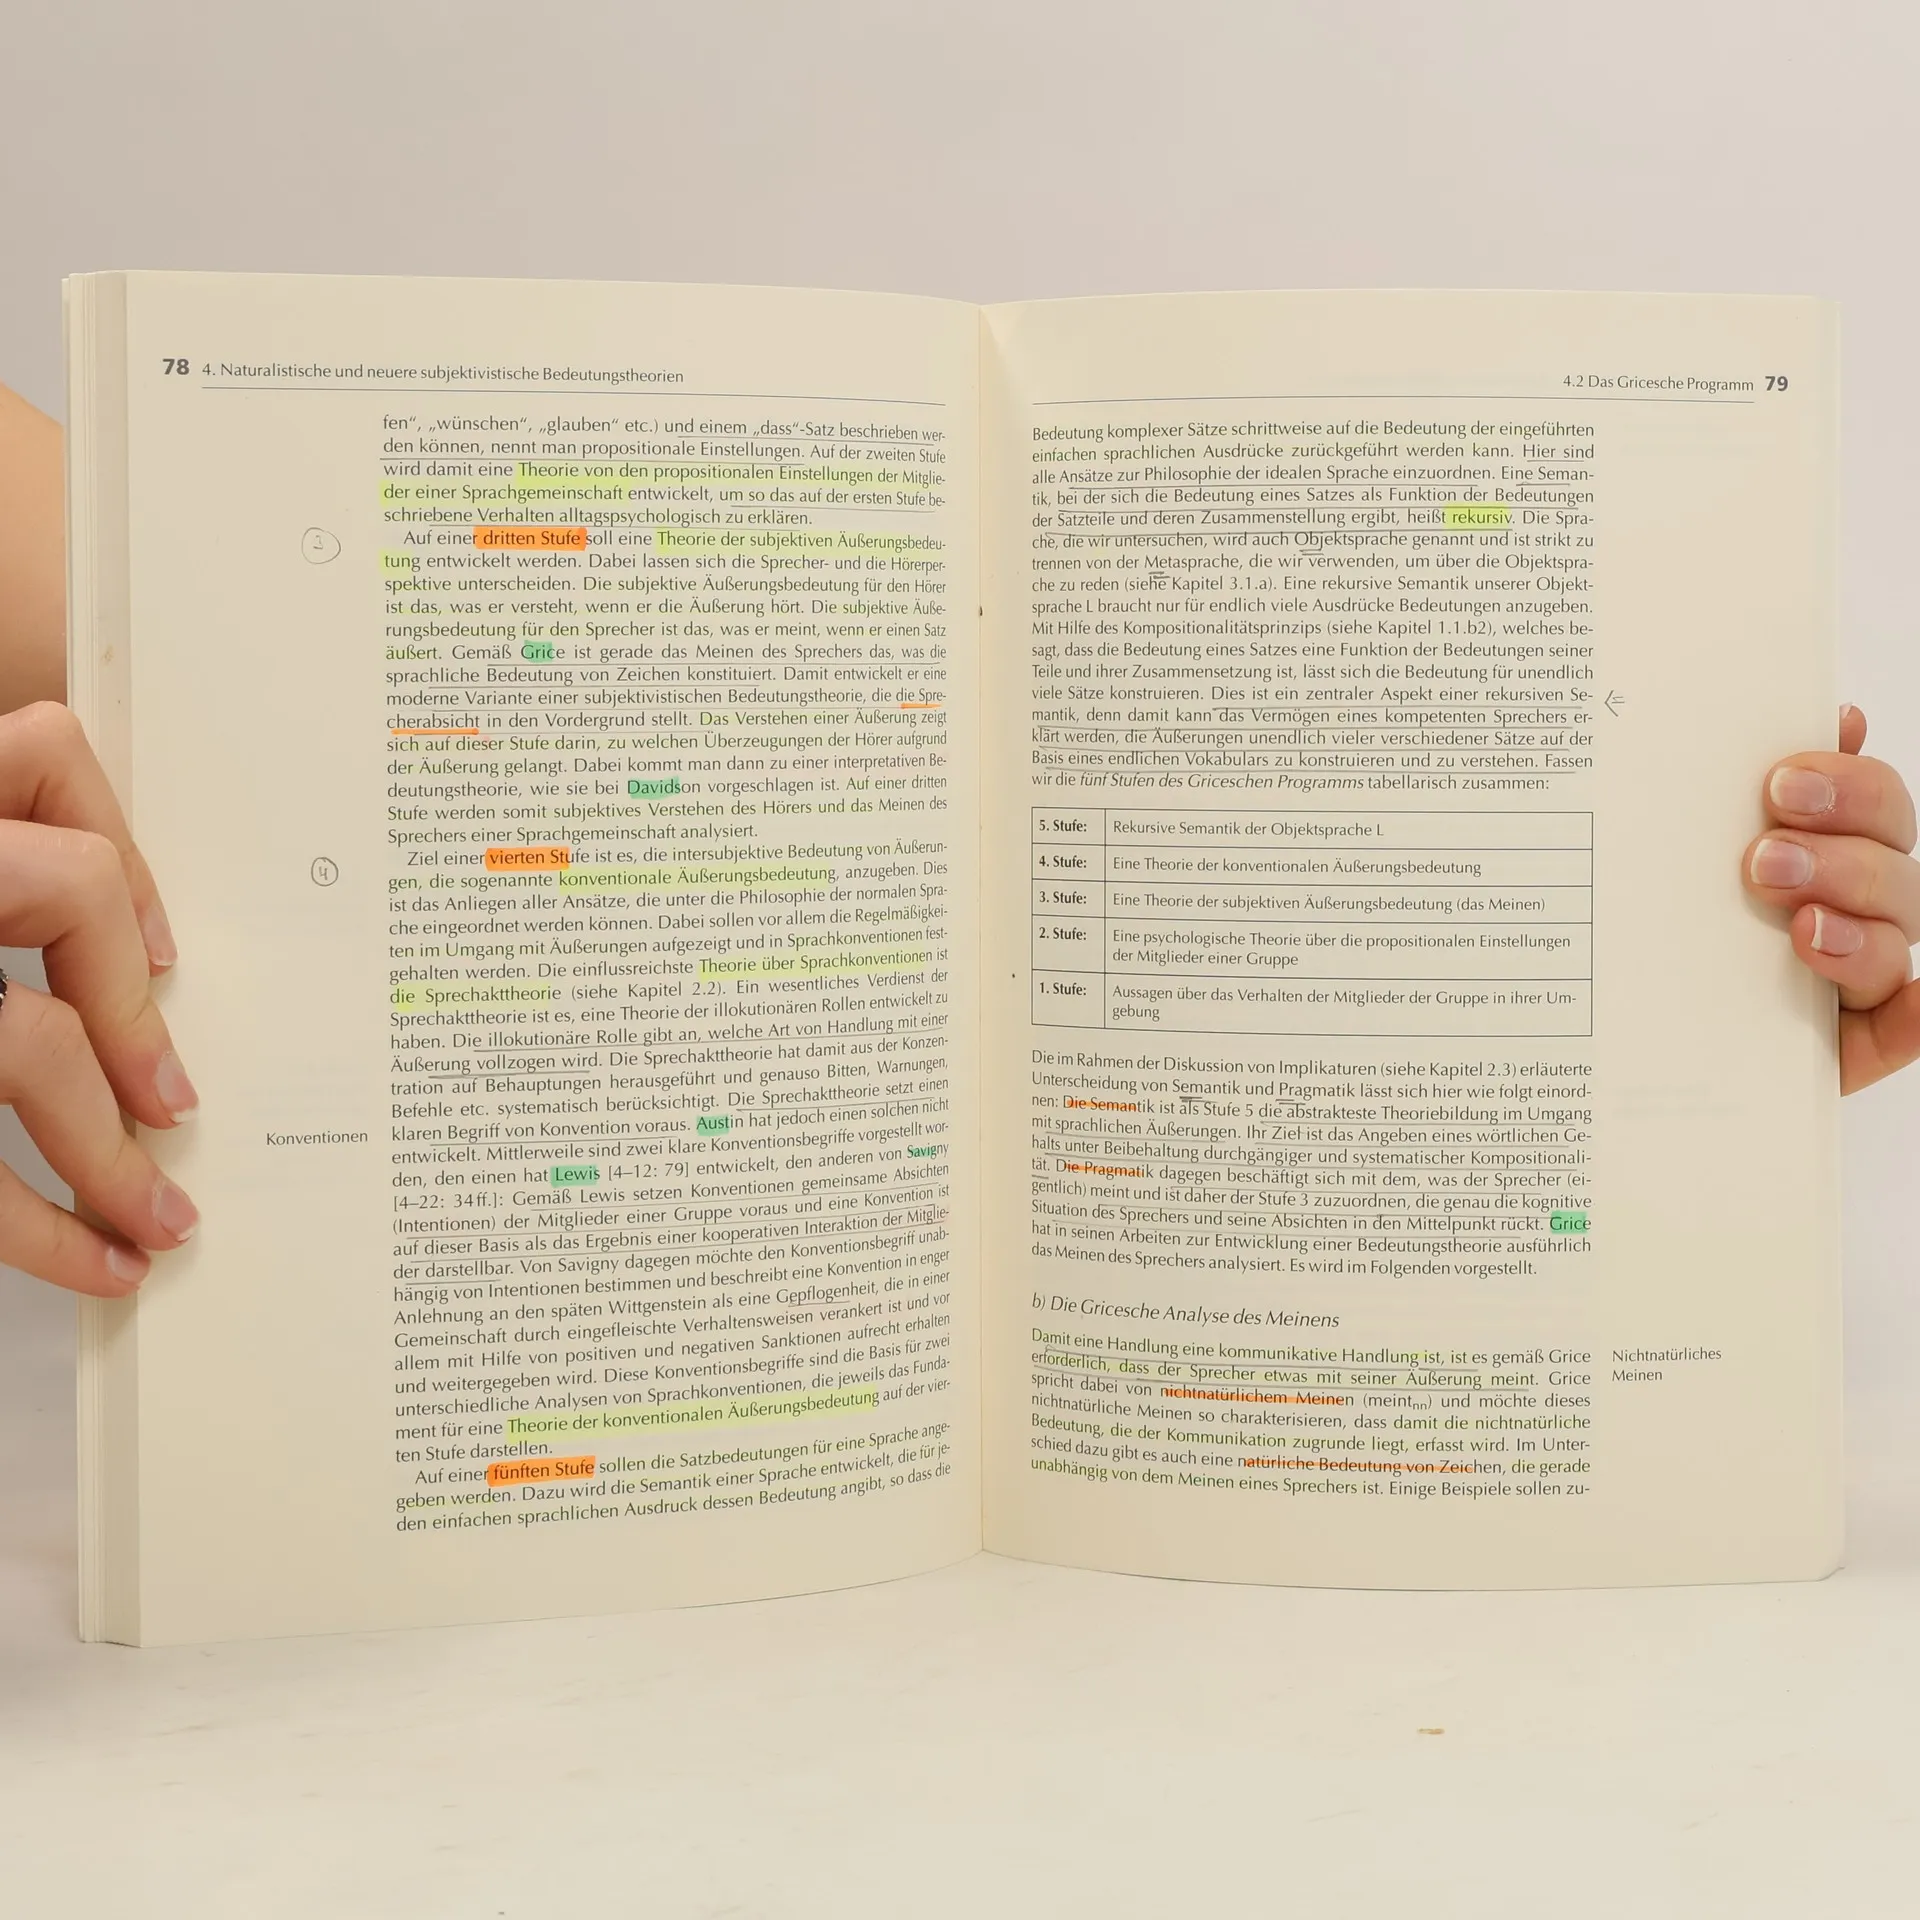 78 4. Naturalistische und neuere subjektivistische Bedeutungstheorien
fen“, „wünschen“, „glauben“ etc.) und einem „dass“-Satz beschrieben wer-
den können, nennt man propositionale Einstellungen. Auf der zweiten Stufe
wird damit eine Theorie von den propositionalen Einstellungen der Mitglie-
der einer Sprachgemeinschaft entwickelt, um so das auf der ersten Stufe be-
schriebene Verhalten alltagspsychologisch zu erklären.
3
Auf einer dritten Stufe soll eine Theorie der subjektiven Äußerungsbedeu-
tung entwickelt werden. Dabei lassen sich die Sprecher- und die Hörerper-
spektive unterscheiden. Die subjektive Äußerungsbedeutung für den Hörer
ist das, was er versteht, wenn er die Äußerung hört. Die subjektive Äuße-
rungsbedeutung für den Sprecher ist das, was er meint, wenn er einen Satz
äußert. Gemäß Grice ist gerade das Meinen des Sprechers das, was die
sprachliche Bedeutung von Zeichen konstituiert. Damit entwickelt er eine
moderne Variante einer subjektivistischen Bedeutungstheorie, die die Spre-
cherabsicht in den Vordergrund stellt. Das Verstehen einer Äußerung zeigt
sich auf dieser Stufe darin, zu welchen Überzeugungen der Hörer aufgrund
der Äußerung gelangt. Dabei kommt man dann zu einer interpretativen Be-
deutungstheorie, wie sie bei Davidson vorgeschlagen ist. Auf einer dritten
Stufe werden somit subjektives Verstehen des Hörers und das Meinen des
Sprechers einer Sprachgemeinschaft analysiert.
4
Ziel einer vierten Stufe ist es, die intersubjektive Bedeutung von Äußerun-
gen, die sogenannte konventionale Äußerungsbedeutung, anzugeben. Dies
ist das Anliegen aller Ansätze, die unter die Philosophie der normalen Spra-
che eingeordnet werden können. Dabei sollen vor allem die Regelmäßigkei-
ten im Umgang mit Äußerungen aufgezeigt und in Sprachkonventionen fest-
gehalten werden. Die einflussreichste Theorie über Sprachkonventionen ist
die Sprechakttheorie (siehe Kapitel 2.2). Ein wesentliches Verdienst der
Sprechakttheorie ist es, eine Theorie der illokutionären Rollen entwickelt zu
haben. Die illokutionäre Rolle gibt an, welche Art von Handlung mit einer
Äußerung vollzogen wird. Die Sprechakttheorie hat damit aus der Konzen-
tration auf Behauptungen herausgeführt und genauso Bitten, Warnungen,
Befehle etc. systematisch berücksichtigt. Die Sprechakttheorie setzt einen
Konventionen
klaren Begriff von Konvention voraus. Austin hat jedoch einen solchen nicht
entwickelt. Mittlerweile sind zwei klare Konventionsbegriffe vorgestellt wor-
den, den einen hat Lewis [4–12: 79] entwickelt, den anderen von Savigny
[4–22: 34ff.]: Gemäß Lewis setzen Konventionen gemeinsame Absichten
(Intentionen) der Mitglieder einer Gruppe voraus und eine Konvention ist
auf dieser Basis als das Ergebnis einer kooperativen Interaktion der Mitglie-
der darstellbar. Von Savigny dagegen möchte den Konventionsbegriff unab-
hängig von Intentionen bestimmen und beschreibt eine Konvention in enger
Anlehnung an den späten Wittgenstein als eine Gepflogenheit, die in einer
Gemeinschaft durch eingefleischte Verhaltensweisen verankert ist und vor
allem mit Hilfe von positiven und negativen Sanktionen aufrecht erhalten
und weitergegeben wird. Diese Konventionsbegriffe sind die Basis für zwei
unterschiedliche Analysen von Sprachkonventionen, die jeweils das Funda-
ment für eine Theorie der konventionalen Äußerungsbedeutung auf der vier-
ten Stufe darstellen.
Auf einer fünften Stufe sollen die Satzbedeutungen für eine Sprache ange-
geben werden. Dazu wird die Semantik einer Sprache entwickelt, die für je-
den einfachen sprachlichen Ausdruck dessen Bedeutung angibt, so dass die
4.2 Das Gricesche Programm 79
Bedeutung komplexer Sätze schrittweise auf die Bedeutung der eingeführten
einfachen sprachlichen Ausdrücke zurückgeführt werden kann. Hier sind
alle Ansätze zur Philosophie der idealen Sprache einzuordnen. Eine Seman-
tik, bei der sich die Bedeutung eines Satzes als Funktion der Bedeutungen
der Satzteile und deren Zusammenstellung ergibt, heißt rekursiv. Die Spra-
che, die wir untersuchen, wird auch Objektsprache genannt und ist strikt zu
trennen von der Metasprache, die wir verwenden, um über die Objektspra-
che zu reden (siehe Kapitel 3.1.a). Eine rekursive Semantik unserer Objekt-
sprache L braucht nur für endlich viele Ausdrücke Bedeutungen anzugeben.
Mit Hilfe des Kompositionalitätsprinzips (siehe Kapitel 1.1.b2), welches be-
sagt, dass die Bedeutung eines Satzes eine Funktion der Bedeutungen seiner
Teile und ihrer Zusammensetzung ist, lässt sich die Bedeutung für unendlich
viele Sätze konstruieren. Dies ist ein zentraler Aspekt einer rekursiven Se-
mantik, denn damit kann das Vermögen eines kompetenten Sprechers er-
klärt werden, die Äußerungen unendlich vieler verschiedener Sätze auf der
Basis eines endlichen Vokabulars zu konstruieren und zu verstehen. Fassen
wir die fünf Stufen des Griceschen Programms tabellarisch zusammen:
5. Stufe: Rekursive Semantik der Objektsprache L
4. Stufe: Eine Theorie der konventionalen Äußerungsbedeutung
3. Stufe: Eine Theorie der subjektiven Äußerungsbedeutung (das Meinen)
2. Stufe: Eine psychologische Theorie über die propositionalen Einstellungen
der Mitglieder einer Gruppe
1. Stufe: Aussagen über das Verhalten der Mitglieder der Gruppe in ihrer Um-
gebung
Die im Rahmen der Diskussion von Implikaturen (siehe Kapitel 2.3) erläuterte
Unterscheidung von Semantik und Pragmatik lässt sich hier wie folgt einord-
nen: Die Semantik ist als Stufe 5 die abstrakteste Theoriebildung im Umgang
mit sprachlichen Äußerungen. Ihr Ziel ist das Angeben eines wörtlichen Ge-
halts unter Beibehaltung durchgängiger und systematischer Kompositionali-
tät. Die Pragmatik dagegen beschäftigt sich mit dem, was der Sprecher (ei-
gentlich) meint und ist daher der Stufe 3 zuzuordnen, die genau die kognitive
Situation des Sprechers und seine Absichten in den Mittelpunkt rückt. Grice
hat in seinen Arbeiten zur Entwicklung einer Bedeutungstheorie ausführlich
das Meinen des Sprechers analysiert. Es wird im Folgenden vorgestellt.
b) Die Gricesche Analyse des Meinens
Damit eine Handlung eine kommunikative Handlung ist, ist es gemäß Grice
erforderlich, dass der Sprecher etwas mit seiner Äußerung meint. Grice
spricht dabei von nichtnatürlichem Meinen (meintnn) und möchte dieses
nichtnatürliche Meinen so charakterisieren, dass damit die nichtnatürliche
Bedeutung, die der Kommunikation zugrunde liegt, erfasst wird. Im Unter-
schied dazu gibt es auch eine natürliche Bedeutung von Zeichen, die gerade
unabhängig von dem Meinen eines Sprechers ist. Einige Beispiele sollen zu-
Nichtnatürliches
Meinen